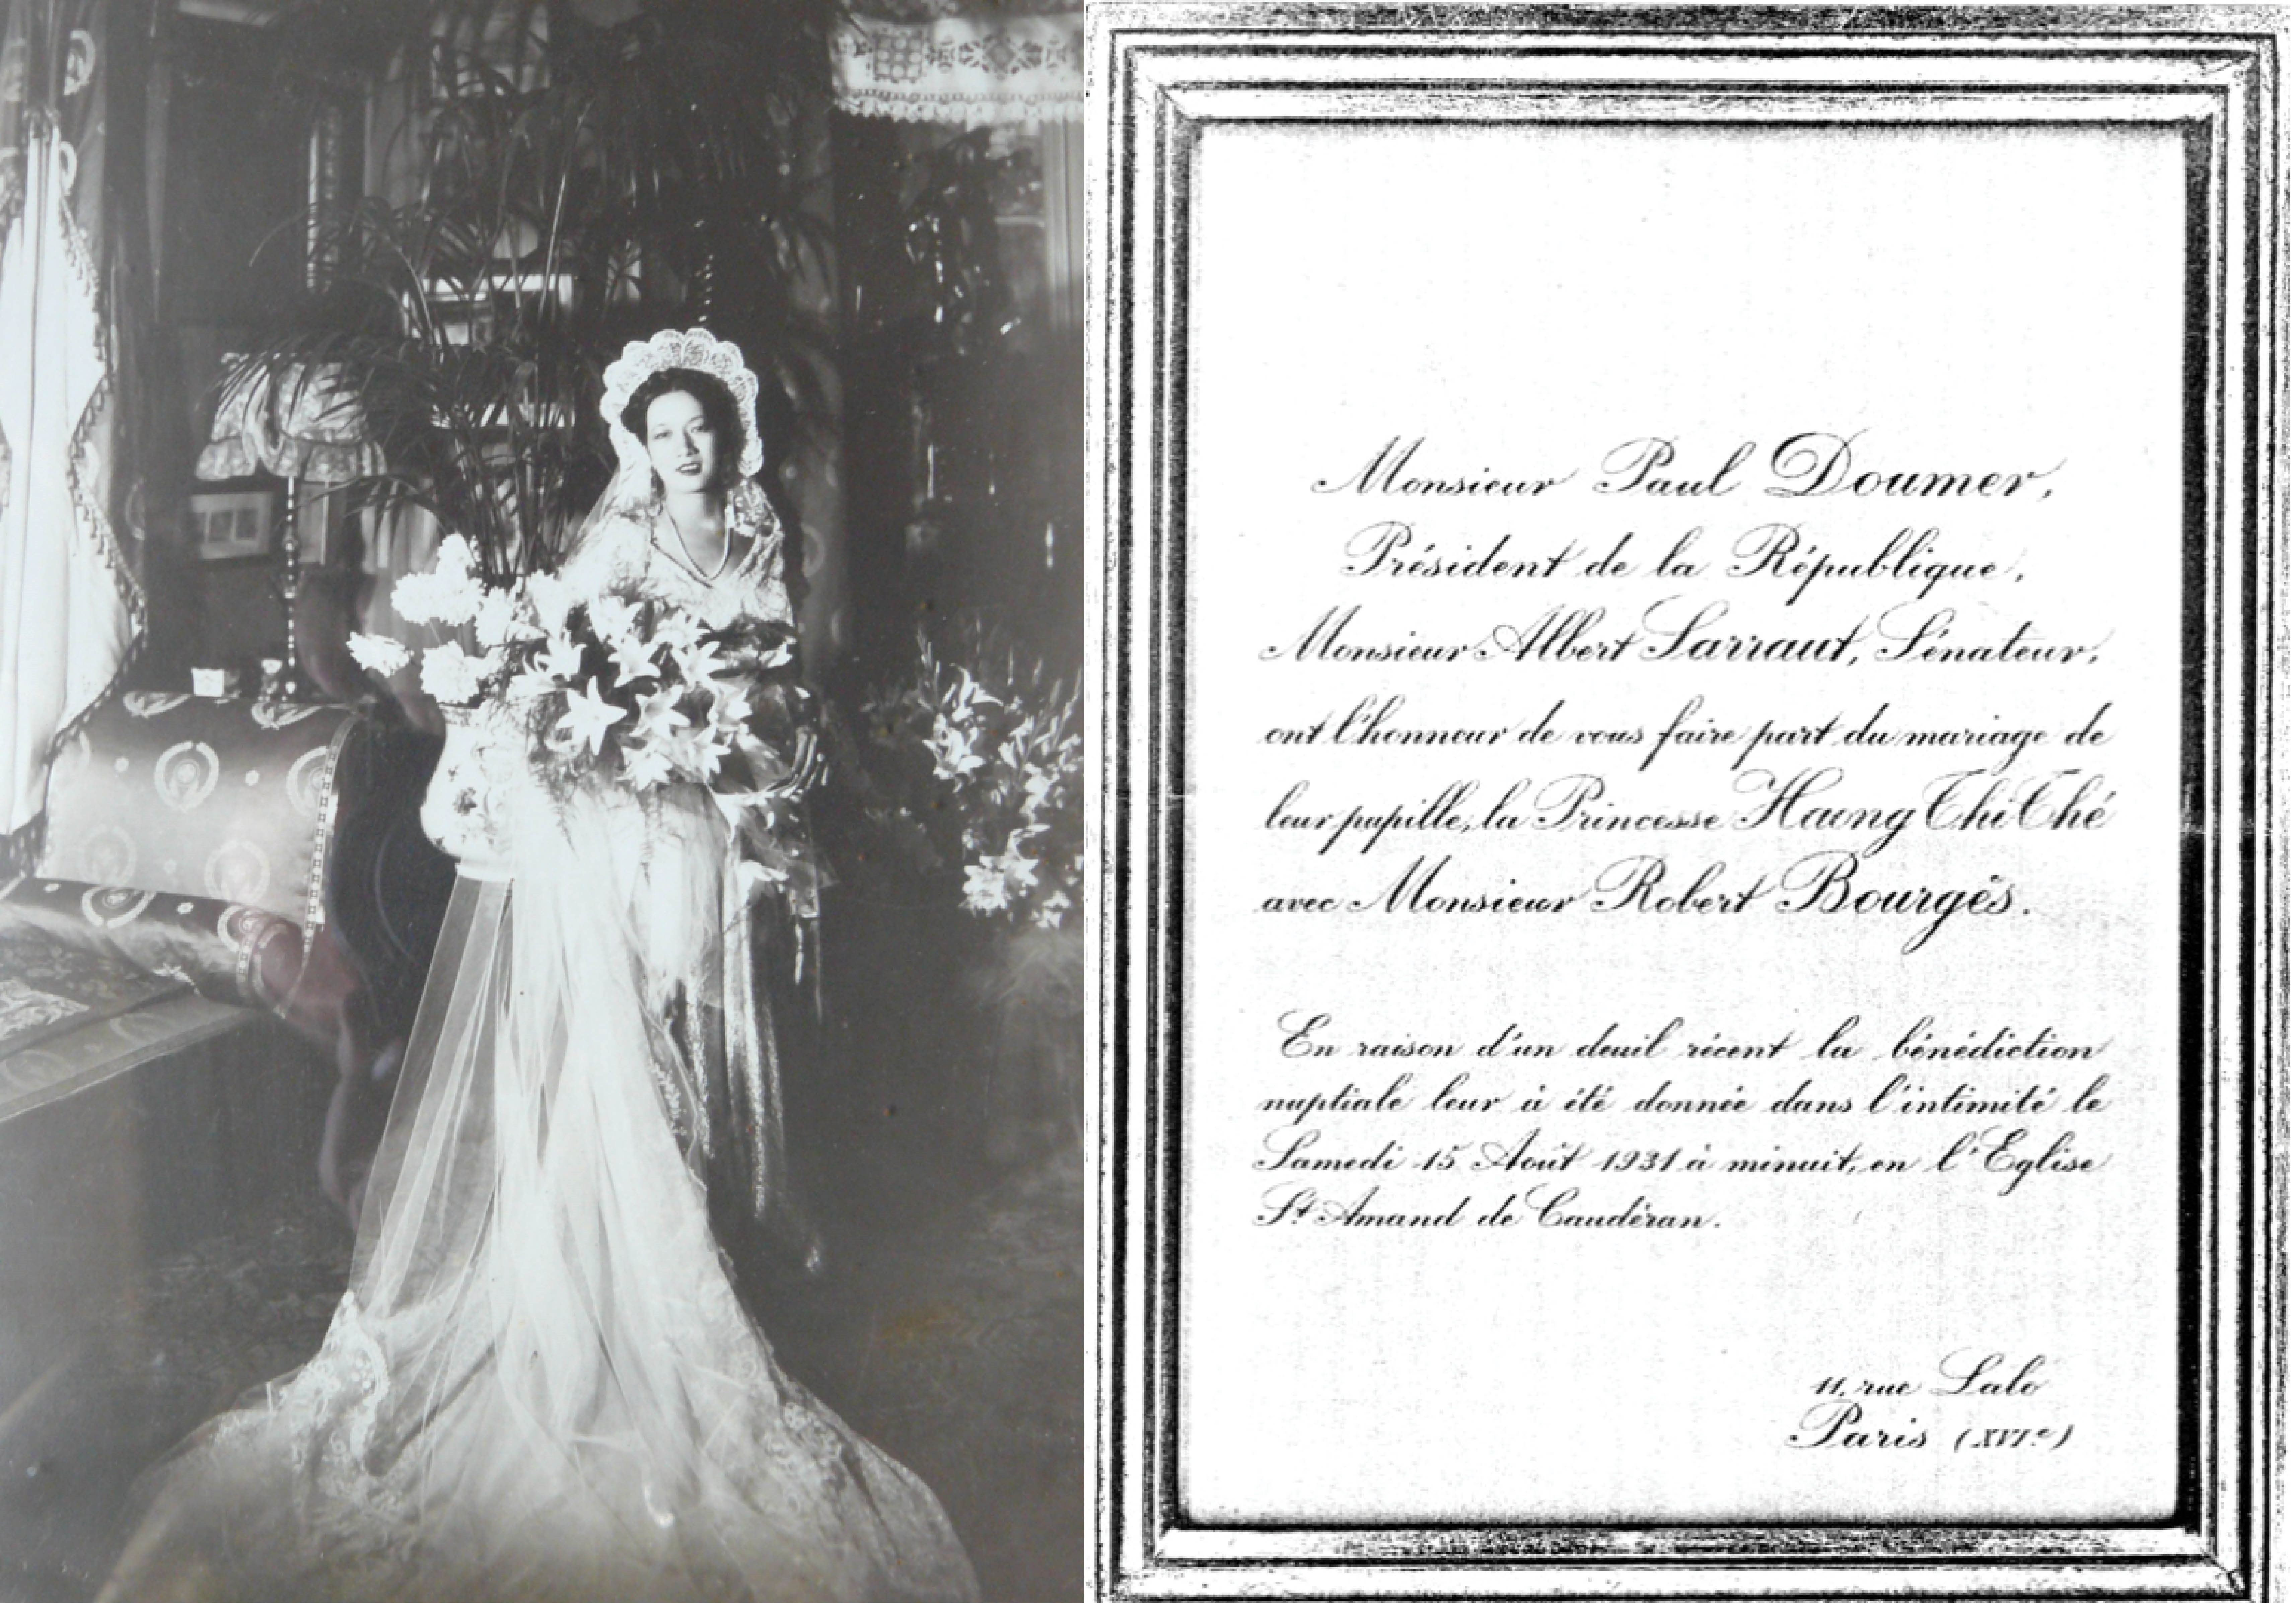 Monsieur Paul Doumer,
Président de la République,
Monsieur Albert Sarraut, Sénateur,
ont l'honneur de vous faire part du mariage de
leur pupille, la Princesse Haong Thi Thé
avec Monsieur Robert Bourgès.
En raison d'un deuil récent la bénédiction
nuptiale leur à été donnée dans l'intimité le
Samedi 15 Août 1931 à minuit, en l'Eglise
St Amand de Caudéran.
11, rue Lalo
Paris (XVIe)